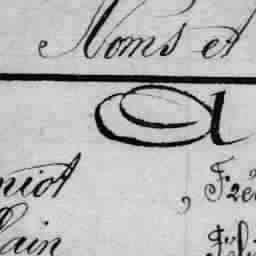 Noms et
A
niot , Fré
lain Éli